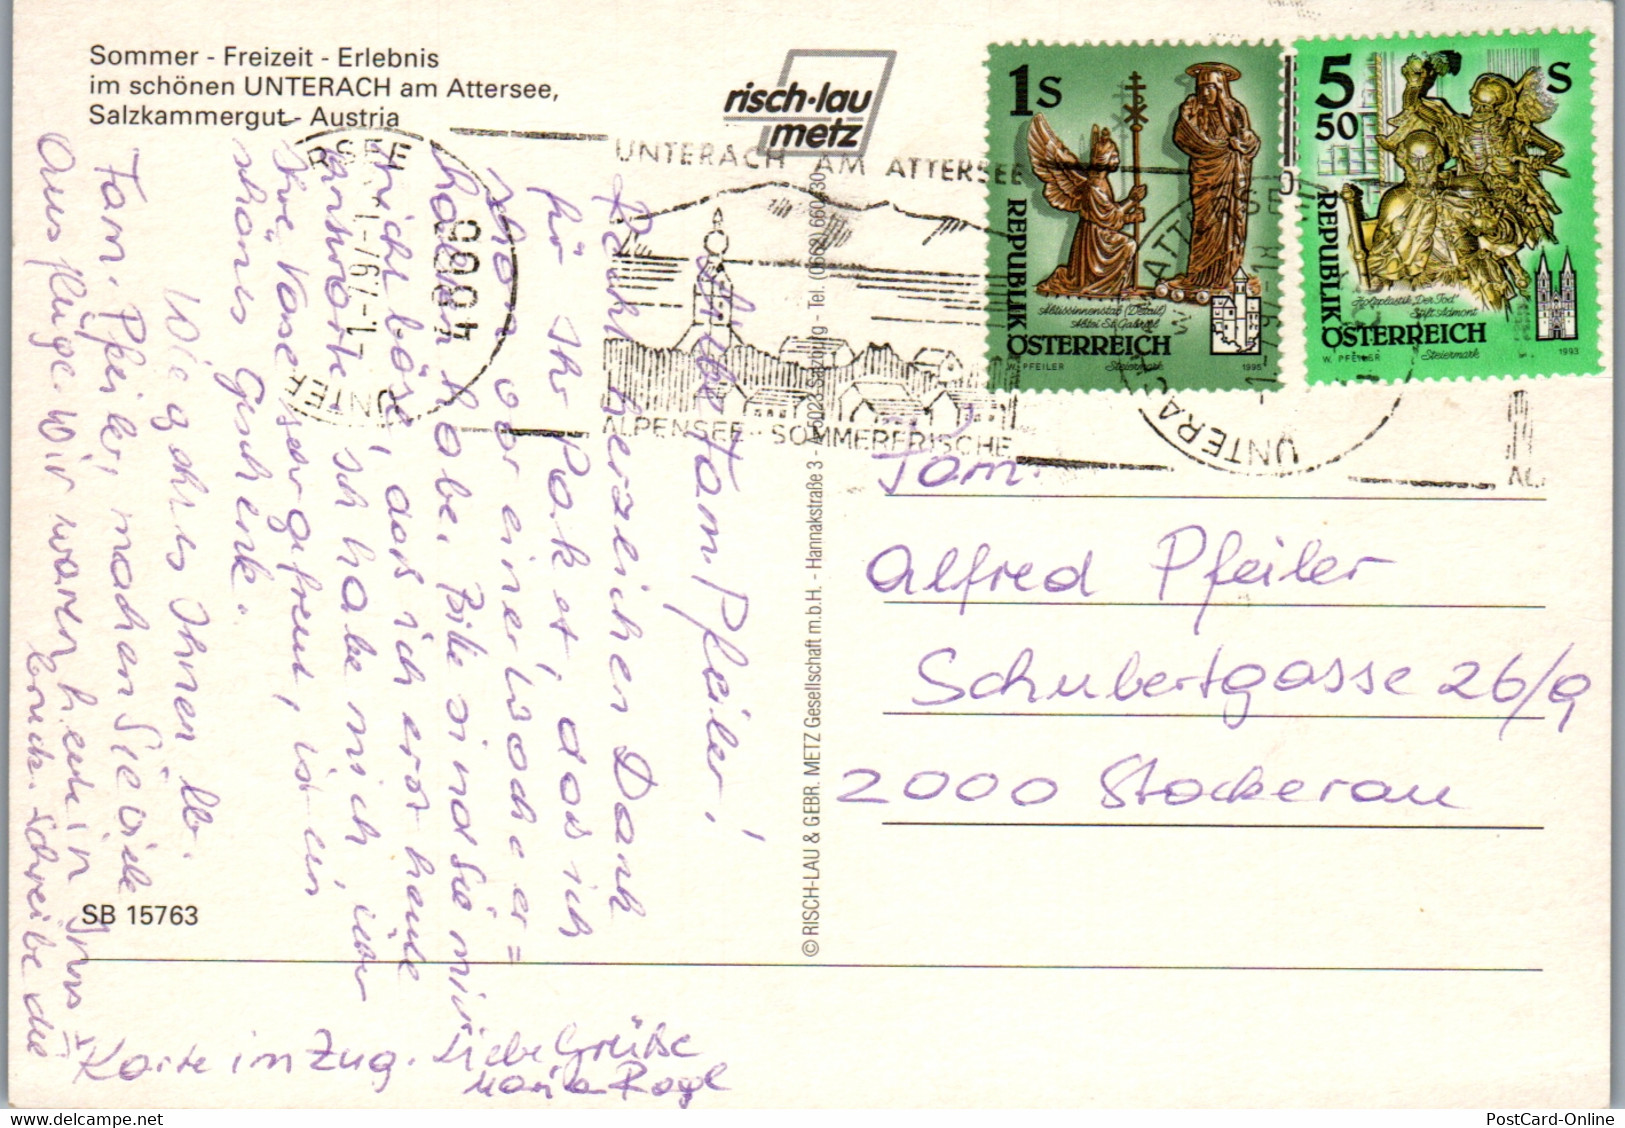 Sommer - Freizeit - Erlebnis
im schönen UNTERACH am Attersee,
Salzkammergut - Austria
risch·lau
metz
UNTERACH AM ATTERSEE
ALPENSEE - SOMMERFRISCHE
4866
-1.-7.97-1
1 S
REPUBLIK
ÖSTERREICH
Äbtissinnenstab (Detail)
Abtei St. Gabriel
Steiermark
W. PFEILER
1995
5 50 S
REPUBLIK
ÖSTERREICH
Holzplastik "Der Tod"
Stift Admont
Steiermark
W. PFEILER
1993
Liebe Fam. Pfeiler!
Recht herzlichen Dank
für Ihr Paket, das ich
schon vor einer Woche er=
halten habe. Bitte sind Sie mir
nicht böse, das ich erst heute
antworte ich habe mich, über
Ihre Vase sehr gefreut, ist ein
schönes Geschenk.
Wie geht es Ihnen lb.
Fam. Pfeiler, machen Sie viele
Ausflüge. Wir waren heute in Inns=
bruck. Schreibe die
Karte im Zug. Liebe Grüße
Maria
Fam.
Alfred Pfeiler
Schubertgasse 26/9
2000 Stockerau
© RISCH-LAU & GEBR. METZ Gesellschaft m.b.H. - Hannakstraße 3 - A-5023 Salzburg - Tel. (0662) 660430
SB 15763
PostCard-Online